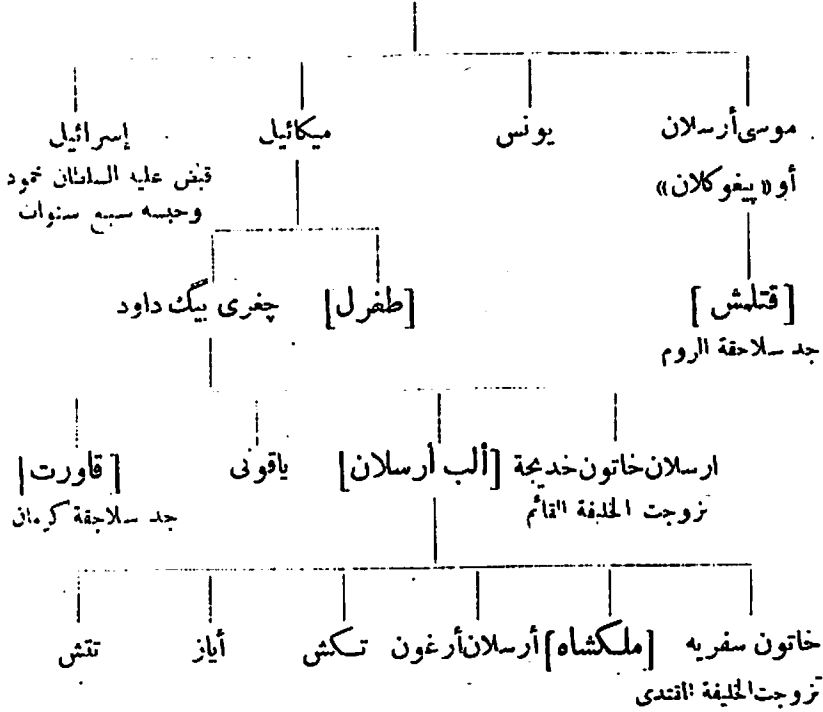 موسى أرسلان
أو «پيغو كلان»
يونس
ميكائيل
إسرائيل
قبض عليه السلطان محمود
وحبسه سبع سنوات
[قتلمش]
جد سلاجقة الروم
[طغرل]
چغرى بيگ داود
ارسلان خاتون خديجة
تزوجت الخليفة القائم
[ألب أرسلان]
ياقوتى
[قاورت]
جد سلاجقة كرمان
خاتون سفريه
تزوجت الخليفة المقتدى
[ملكشاه]
أرسلان أرغون
تكش
أياز
تتش